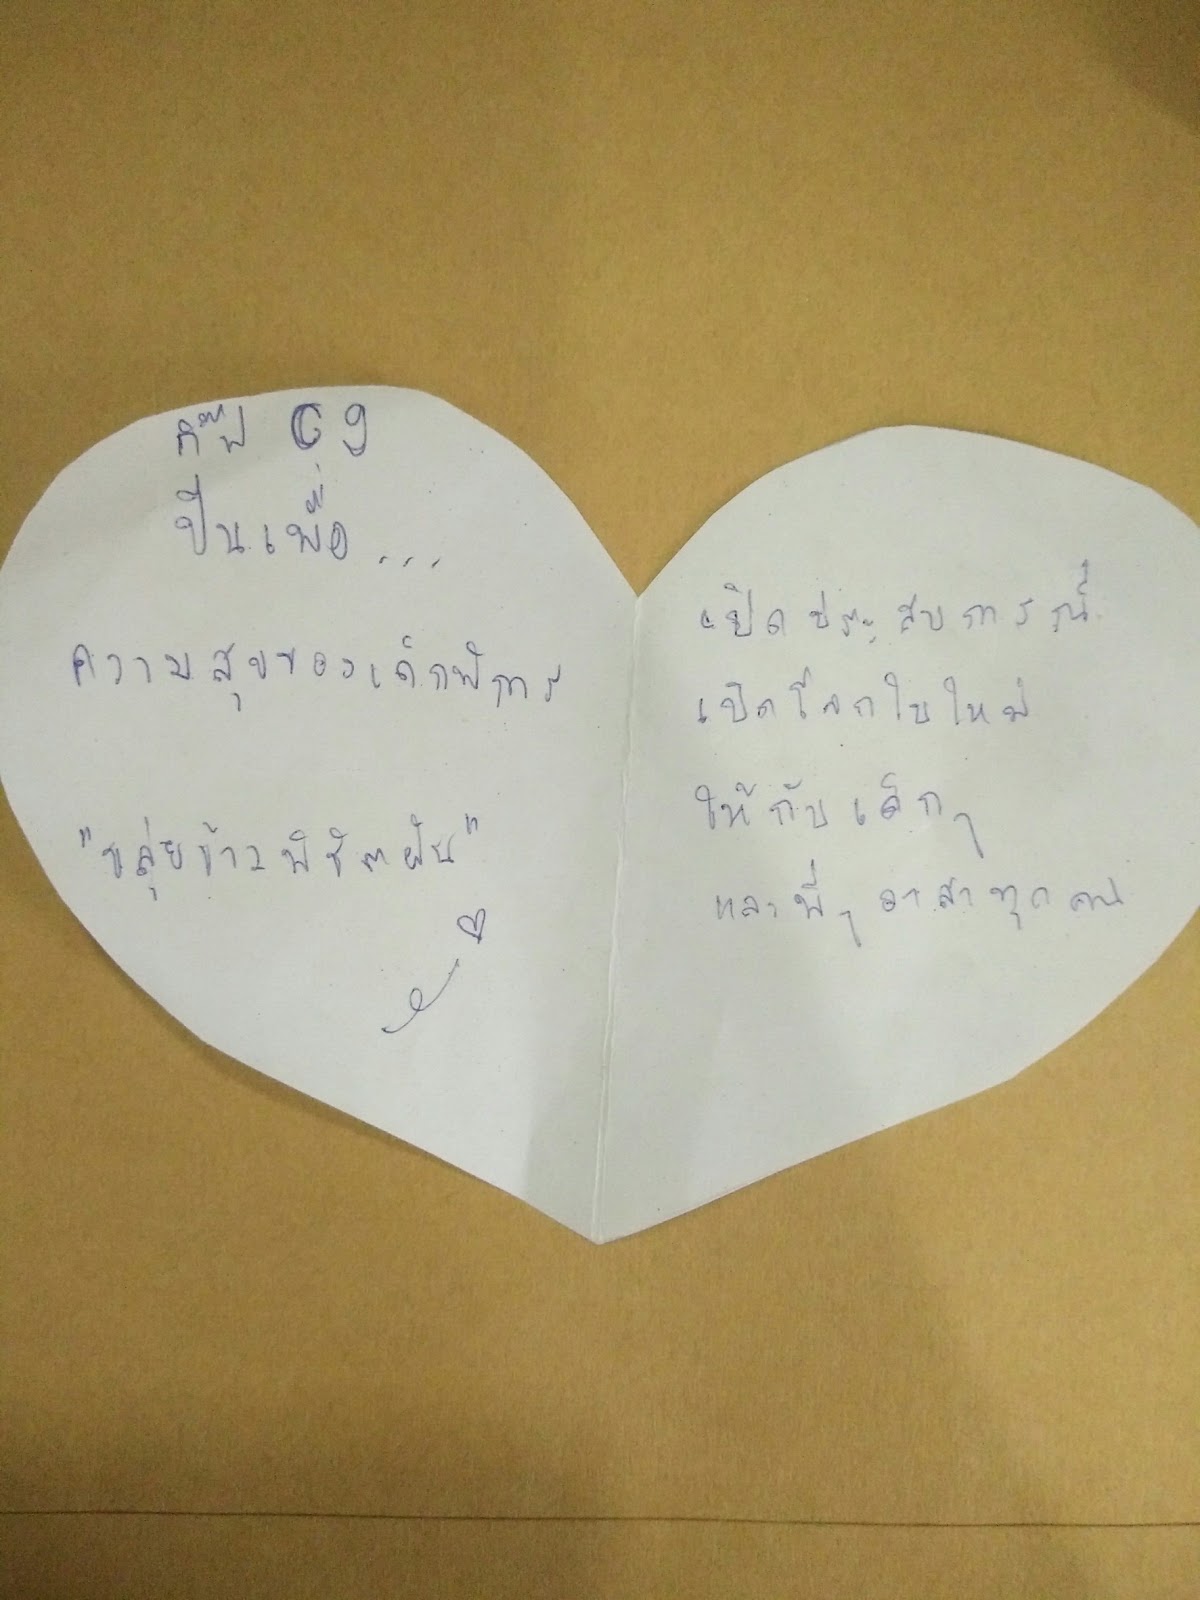 กิ๊ฟ C9
ปีนเพื่อ...
ความสุขของเด็กพิการ
"ขลุ่ยข้าวพิชิตฝัน"
เปิดประสบการณ์
เปิดโลกใบใหม่
ให้กับเด็กๆ
และพี่ๆ อาสาทุกคน